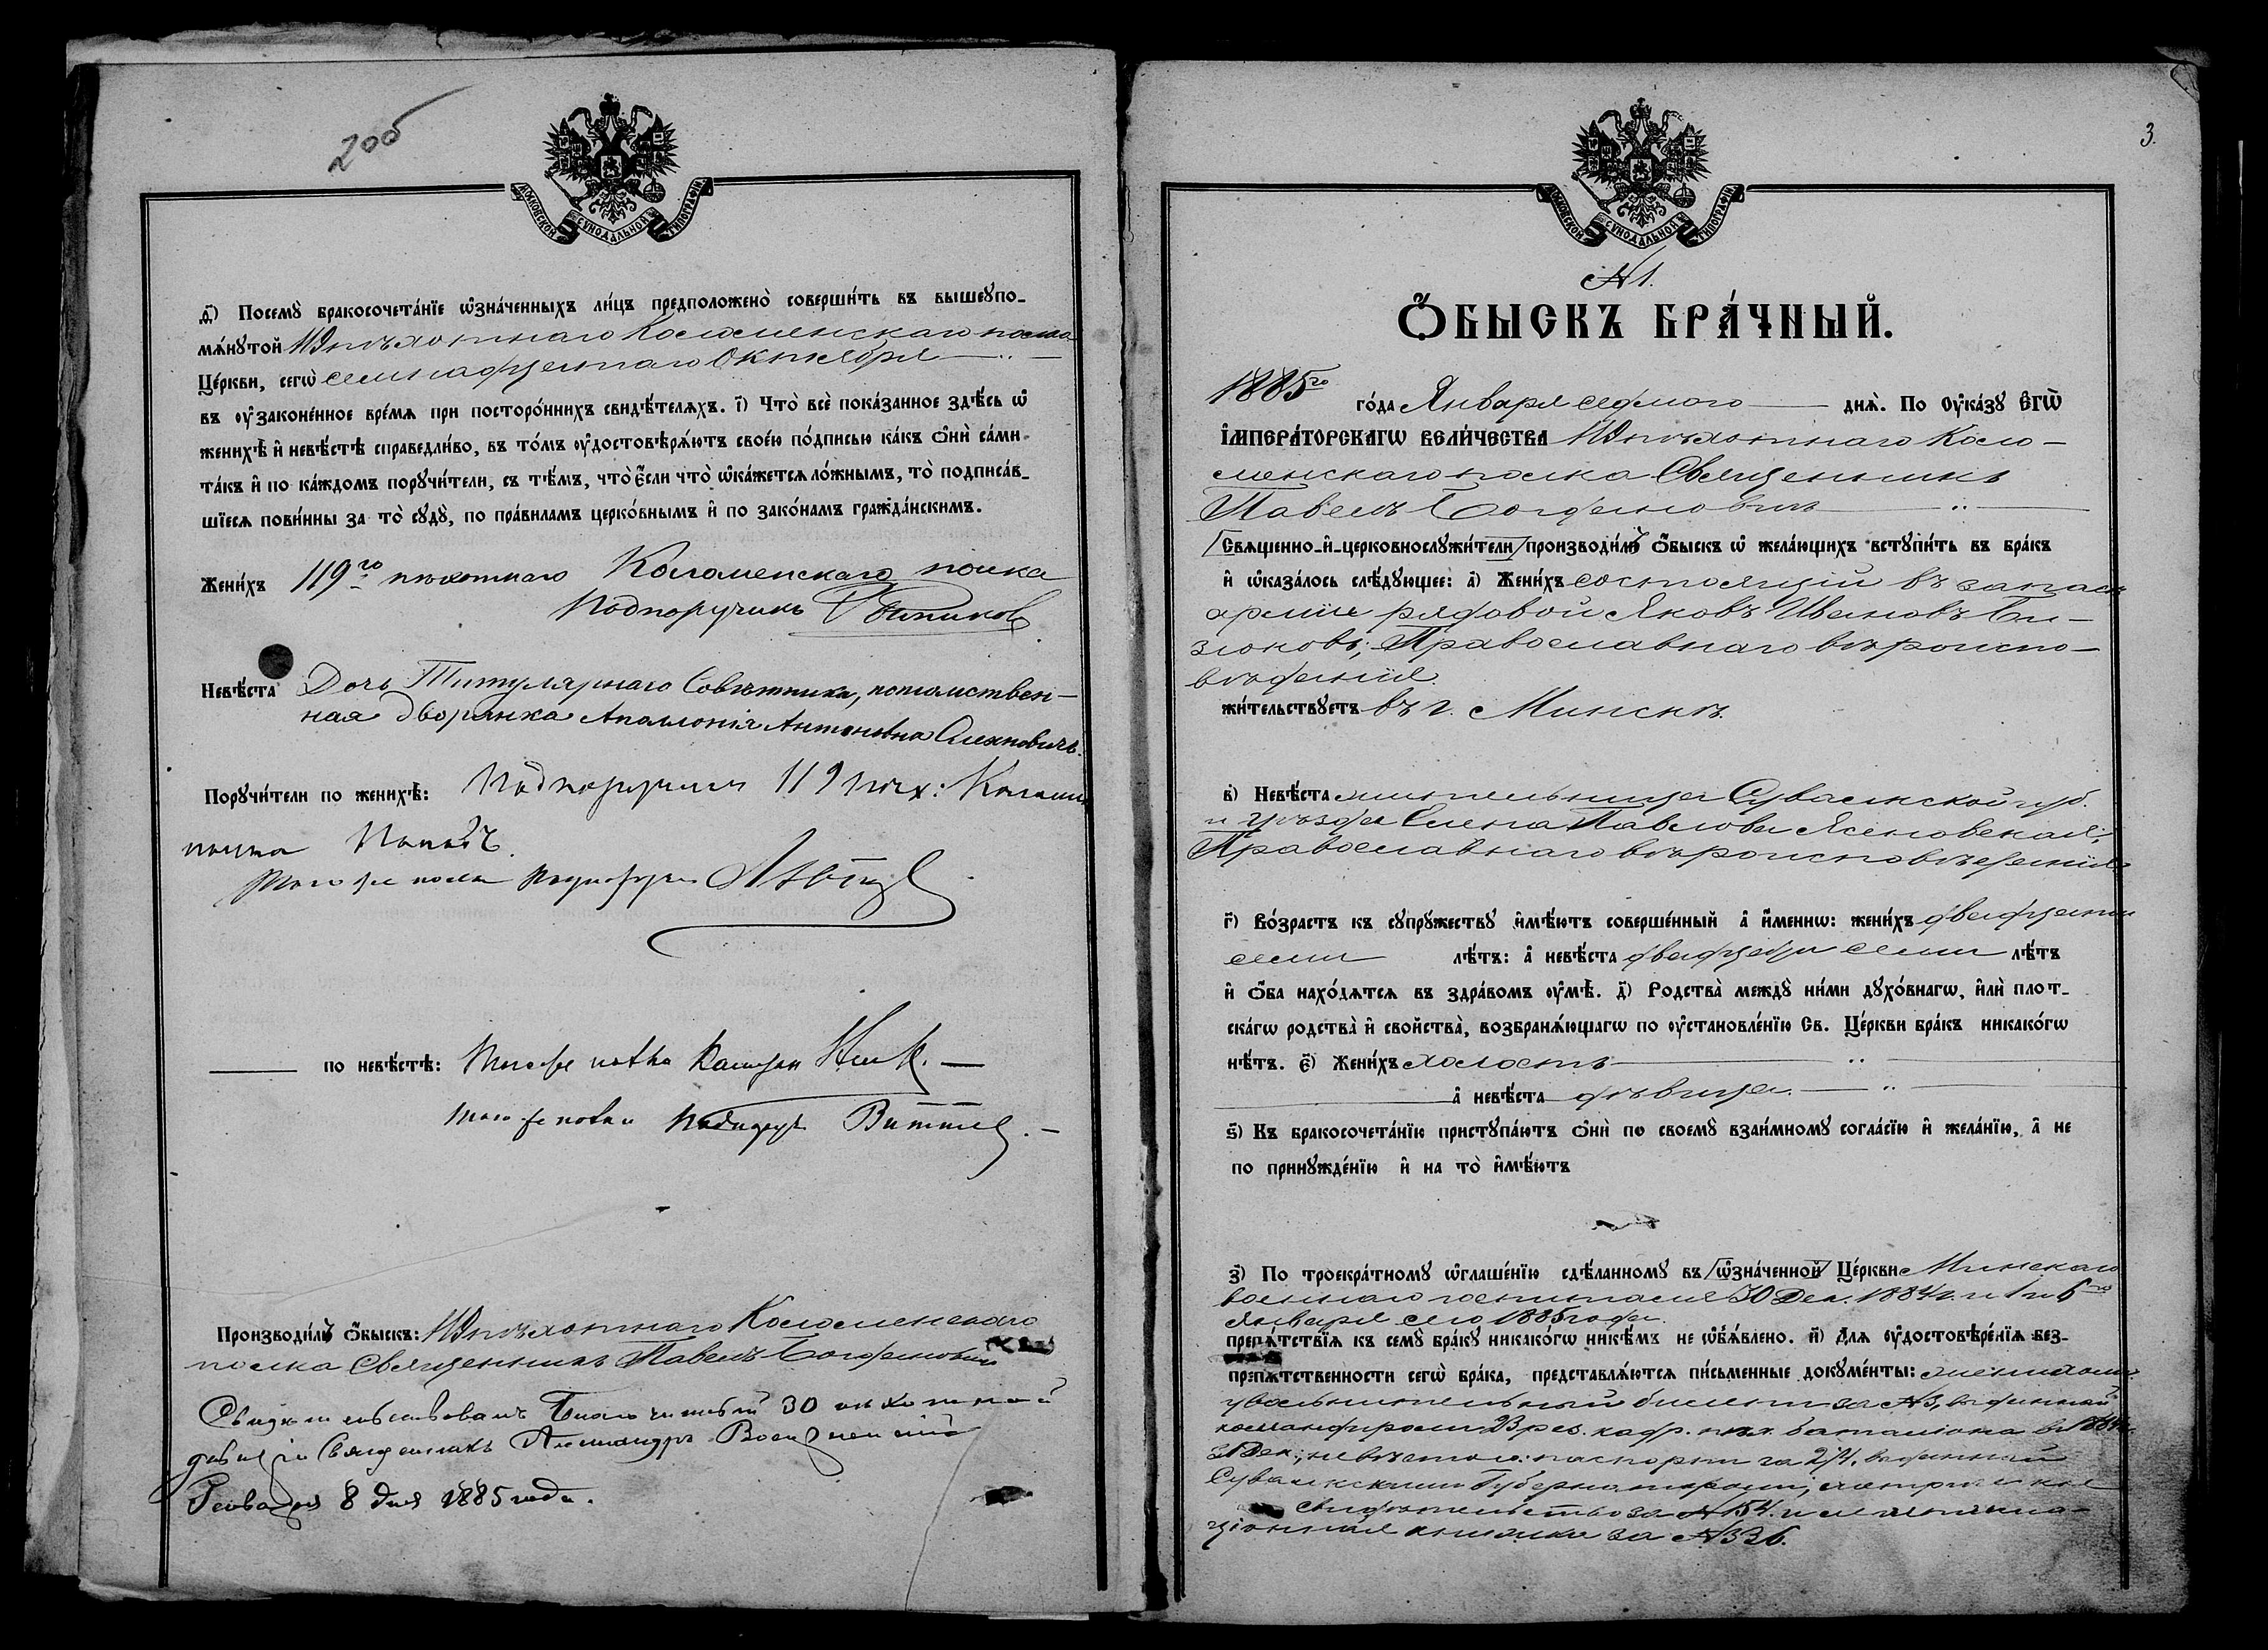 2об
МОСКОВСКОЙ СѴНОДАЛЬНОЙ ТИПОГРАФІИ
д҃) Посемꙋ̀ бракосочета́нїе ѡ҆зна́ченныхъ ли́цъ предположено̀ соверши́ть въ вышеꙋпо-
мѧ́нꙋтой 119 пѣхотнаго Коломенскаго полка
Це́ркви, сегѡ̀ семнадцатаго Октября
въ ᲂу҆зако́ненное вре́мѧ при посторо́ннихъ свидѣ́телѧхъ. і҃) Что̀ всѐ пока́занное здѣ́сь ѡ҆
женихѣ̀ и҆ невѣ́стѣ справедли́во, въ то́мъ ᲂу҆достовѣрѧ́ютъ свое́ю по́дписью ка́къ ѻ҆нѝ са́ми
та́къ и҆ по ка́ждомъ порꙋчи́тели, съ тѣ́мъ, что̀ є҆́сли что̀ ѡ҆ка́жетсѧ ло́жнымъ, то̀ подписа́в-
шїесѧ пови́нны за то̀ сꙋдꙋ̀, по пра́виламъ церко́внымъ и҆ по зако́намъ гражда́нскимъ.
Жени́хъ 119го пѣхотнаго Коломенскаго полка
Подпоручикъ
Невѣ́ста Дочь Титулярнаго Совѣтника, потомствен-
ная дворянка Аполлонія Антоновна Олехновичъ.
Порꙋчи́тели по женихѣ̀: Подпоручикъ 119 пѣх: Коломен
полка
Того же полка Подпоручикъ
по невѣ́стѣ: Того же полка
Того же полка
Производи́лъ ѻ҆́быскъ: 119 пѣхотнаго Коломенскаго
полка Священникъ Павелъ Богдановичъ
Свидѣтельствовалъ Благочинный 30 пѣхотной
дивизіи Священникъ Александръ
Генваря 8 дня 1885 года.
3.
МОСКОВСКОЙ СѴНОДАЛЬНОЙ ТИПОГРАФІИ
№ 1.
Ѻ҆́БЫСКЪ БРА́ЧНЫЙ.
1885го го́да Января седьмого днѧ̀. По Оу҆ка́зꙋ Є҆ГѠ̀
І҆МПЕРА́ТОРСКАГѠ ВЕЛИ́ЧЕСТВА 119 пѣхотнаго Коло-
менскаго полка Священникъ
Павелъ Богдановичъ
Свѧще́нно-и҆-церковнослꙋжи́тели производи́лъ ѻ҆́быскъ ѡ҆ жела́ющихъ встꙋпи́ть въ бра́къ
и҆ ѡ҆каза́лось слѣ́дꙋющее: а҃) Жени́хъ состоящій въ запасѣ
арміи рядовой Яковъ Ивановъ Би-
зюковъ; Православнаго вѣроиспо-
вѣданія.
жи́тельствꙋетъ въ г. Минскѣ.
в҃) Невѣ́ста жительница Сувалкской губ.
и уѣзда Елена Павлова Ясеновская;
Православнаго вѣроисповѣданія
г҃) Во́зрастъ къ сꙋпрꙋ́жествꙋ и҆мѣ́ютъ соверше́нный а҆ и҆́менно: жени́хъ двадцати
семи лѣ́тъ: а҆ невѣ́ста двадцати семи лѣ́тъ
и҆ ѻ҆́ба нахо́дѧтсѧ въ здра́вомъ ᲂу҆мѣ̀. д҃) Родства̀ междꙋ̀ ни́ми дꙋхо́внагѡ, и҆лѝ плот-
ска́гѡ родства̀ и҆ свойства̀, возбранѧ́ющагѡ по ᲂу҆становле́нїю Св. Це́ркви бра́къ никако́гѡ
нѣ́тъ. є҃) Жени́хъ холостъ
а҆ невѣ́ста дѣвица.
ѕ҃) Къ бракосочета́нїю пристꙋпа́ютъ ѻ҆нѝ по своемꙋ̀ взаи́мномꙋ согла́сїю и҆ жела́нїю, а҆ не
по принꙋжде́нїю и҆ на то̀ и҆мѣ́ютъ
з҃) По троекра́тномꙋ ѡ҆глаше́нїю сдѣ́ланномꙋ въ ѡ҆зна́ченной Це́ркви Минскаго
военнаго госпиталя 30 Дек. 1884 г. и 1 и 6го
Января сего 1885 года.
препѧ́тствїѧ къ семꙋ̀ бра́кꙋ никако́гѡ никѣ́мъ не ѡ҆б̾ѧ́влено. и҃) Длѧ ᲂу҆достовѣре́нїѧ без-
препѧ́тственности сегѡ̀ бра́ка, представлѧ́ютсѧ пи́сьменные докꙋме́нты: женихомъ
увольнительный билетъ за № 3, выданный
командиромъ Врез. кадр. пѣх. баталіона въ 1884 г.
31 Дек.; невѣстою: паспортъ за 274, выданный
Сувалкскимъ Губернаторомъ; метрическое
свидѣтельство за № 154. и
книжка за № 336.